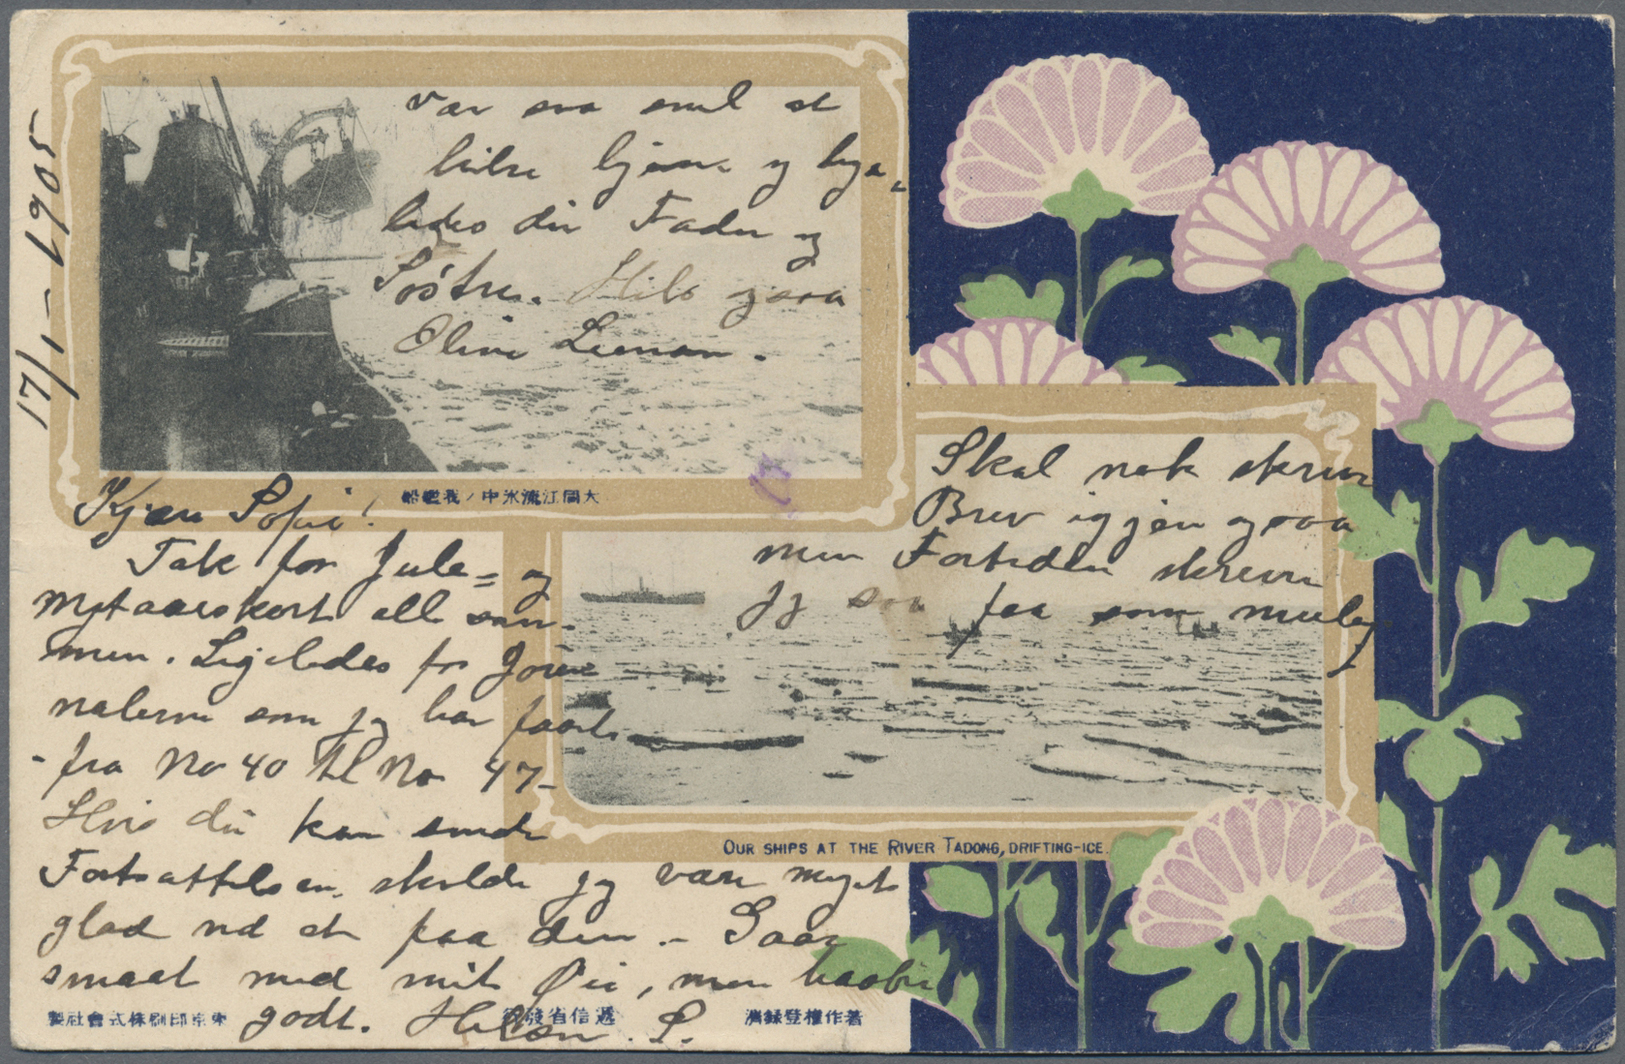 17/1-1905
Kjære Sofie!
Tak for Jule- og
Nytaarskort alle sam-
men. Ligeledes for Jour
nalerne som jeg har faaet
- fra No 40 til No 47-
Hvis du kan sende
Fortsættelsen, skulde jeg være meget
glad ved at faa den. - Gaar
smaat med mit Øie, men haaber
godt. Hilsen. S.
Skal nok skrive
Brev igjen ogsaa
men Fortiden skriver
jeg saa faa som mulig
Vær saa snil at
hilse hjem og lige-
ledes din Fader og
Søstre. Hils ogsaa
Oline
大同江流氷中ノ我艦船
OUR SHIPS AT THE RIVER TADONG, DRIFTING-ICE.
東京印刷株式會社製
逓信省發行
著作權登録濟